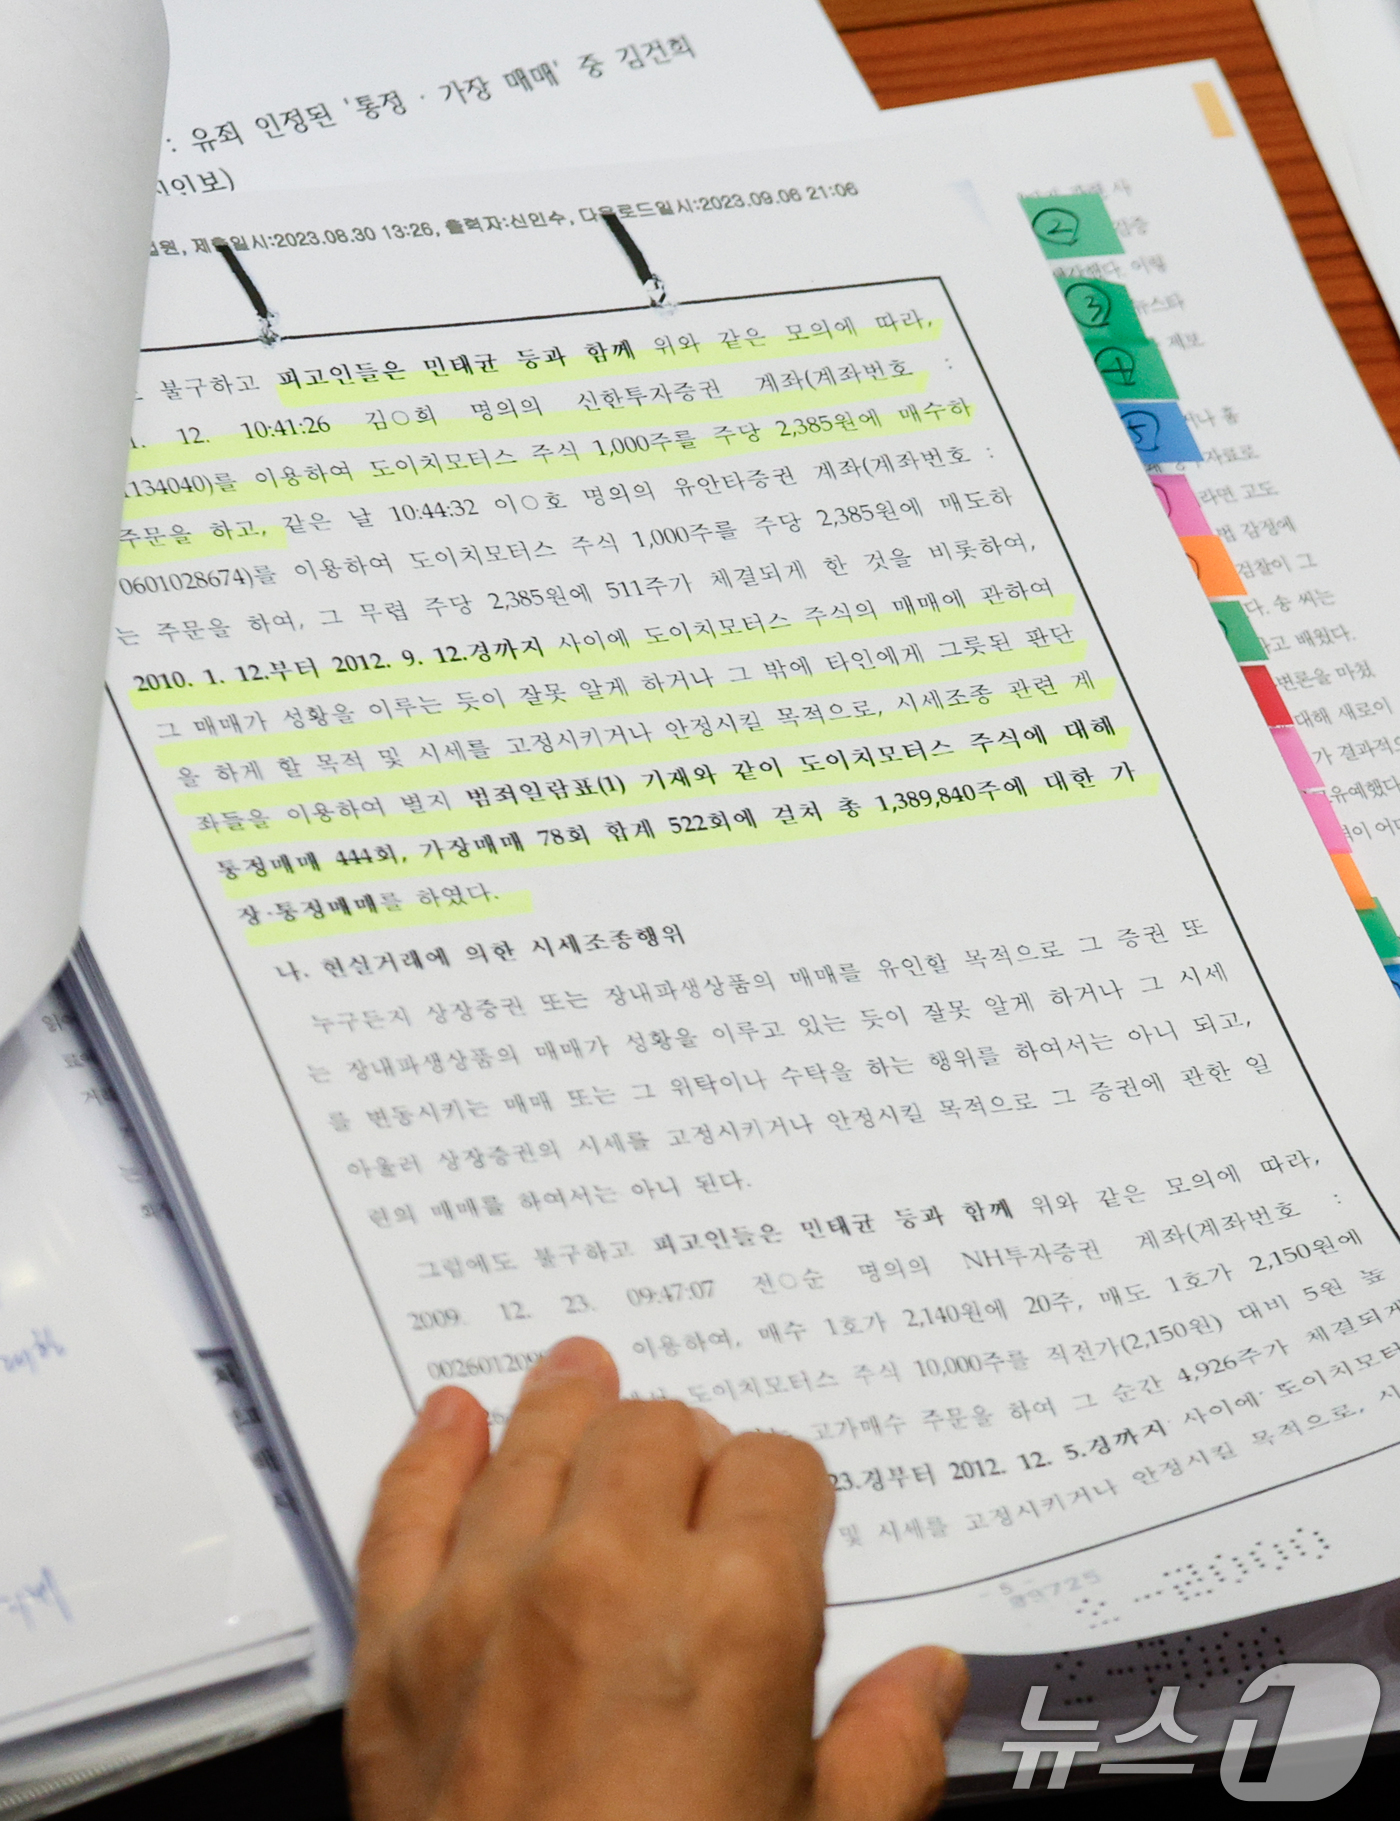 : 유죄 인정된 '통정 · 가장 매매' 중 김건희
제출일시:2023.08.30 13:26, 출력자:신인수, 다운로드일시:2023.09.06 21:06
불구하고 피고인들은 민태균 등과 함께 위와 같은 모의에 따라,
1. 12. 10:41:26 김○희 명의의 신한투자증권 계좌(계좌번호 :
1134040)를 이용하여 도이치모터스 주식 1,000주를 주당 2,385원에 매수하
주문을 하고, 같은 날 10:44:32 이○호 명의의 유안타증권 계좌(계좌번호 :
0601028674)를 이용하여 도이치모터스 주식 1,000주를 주당 2,385원에 매도하
는 주문을 하여, 그 무렵 주당 2,385원에 511주가 체결되게 한 것을 비롯하여,
2010. 1. 12.부터 2012. 9. 12.경까지 사이에 도이치모터스 주식의 매매에 관하여
그 매매가 성황을 이루는 듯이 잘못 알게 하거나 그 밖에 타인에게 그릇된 판단
을 하게 할 목적 및 시세를 고정시키거나 안정시킬 목적으로, 시세조종 관련 계
좌들을 이용하여 별지 범죄일람표(1) 기재와 같이 도이치모터스 주식에 대해
통정매매 444회, 가장매매 78회 합계 522회에 걸쳐 총 1,389,840주에 대한 가
장·통정매매를 하였다.
나. 현실거래에 의한 시세조종행위
누구든지 상장증권 또는 장내파생상품의 매매를 유인할 목적으로 그 증권 또
는 장내파생상품의 매매가 성황을 이루고 있는 듯이 잘못 알게 하거나 그 시세
를 변동시키는 매매 또는 그 위탁이나 수탁을 하는 행위를 하여서는 아니 되고,
아울러 상장증권의 시세를 고정시키거나 안정시킬 목적으로 그 증권에 관한 일
련의 매매를 하여서는 아니 된다.
그럼에도 불구하고 피고인들은 민태균 등과 함께 위와 같은 모의에 따라,
2009. 12. 23. 09:47:07 전○순 명의의 NH투자증권 계좌(계좌번호 :
이용하여, 매수 1호가 2,140원에 20주, 매도 1호가 2,150원에
도이치모터스 주식 10,000주를 직전가(2,150원) 대비 5원 높
고가매수 주문을 하여 그 순간 4,926주가 체결되게
23.경부터 2012. 12. 5.경까지 사이에 도이치모터
및 시세를 고정시키거나 안정시킬 목적으로, 시
- 5 -
②
③
④
⑤
뉴스타
제보
라면 고도
범 감정에
검찰이 그
다. 송 씨는
고 배웠다.
변론을 마쳤
대해 새로이
가 결과적으
유예했다
뉴스1